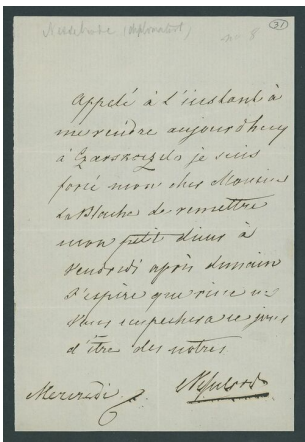 (31)
Nesselrode (diplomate)
Appelé à l'instant à
me rendre aujourd'huy
à Czarskoizelo je suis
forcé mon cher Monsieur
La Blache de remettre
mon petit diner à
Vendredi après demain
J'espère que rien ne
Vous empechera ce jour
d'être des notres
Mercredi